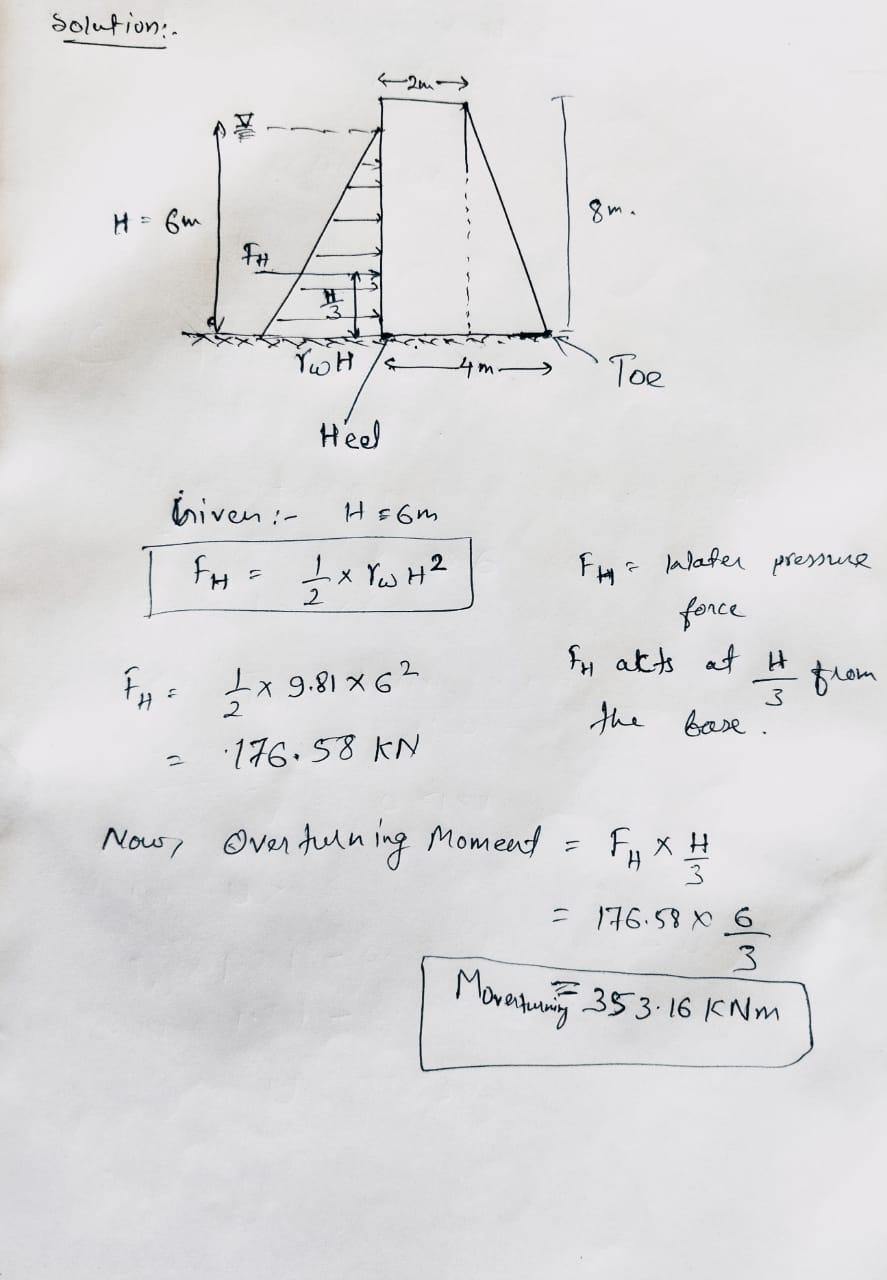 Solution:-
2m
H = 6m
8m.
FH
H/3
γwH
4m
Toe
Heel
Given :- H = 6m
FH = 1/2 × γw H²
FH = Water pressure
force
FH = 1/2 × 9.81 × 6²
FH akts at H/3 from
the base.
= 176.58 KN
Now, Overturning Moment = FH × H/3
= 176.58 × 6/3
Moverturning = 353.16 KNm